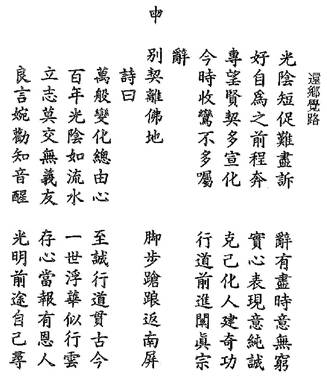 還鄉覺路
光陰短促難盡訴　辭有盡時意無窮
好自爲之前程奔　實心表現意純誠
專望賢契多宣化　克己化人建奇功
今時收鸞不多囑　行道前進闡眞宗
辭
申
別契離佛地　脚步蹌踉返南屏
詩曰
萬般變化總由心　至誠行道貫古今
百年光陰如流水　一世浮華似行雲
立志莫交無義友　存心當報有恩人
良言婉勸知音醒　光明前途自己尋